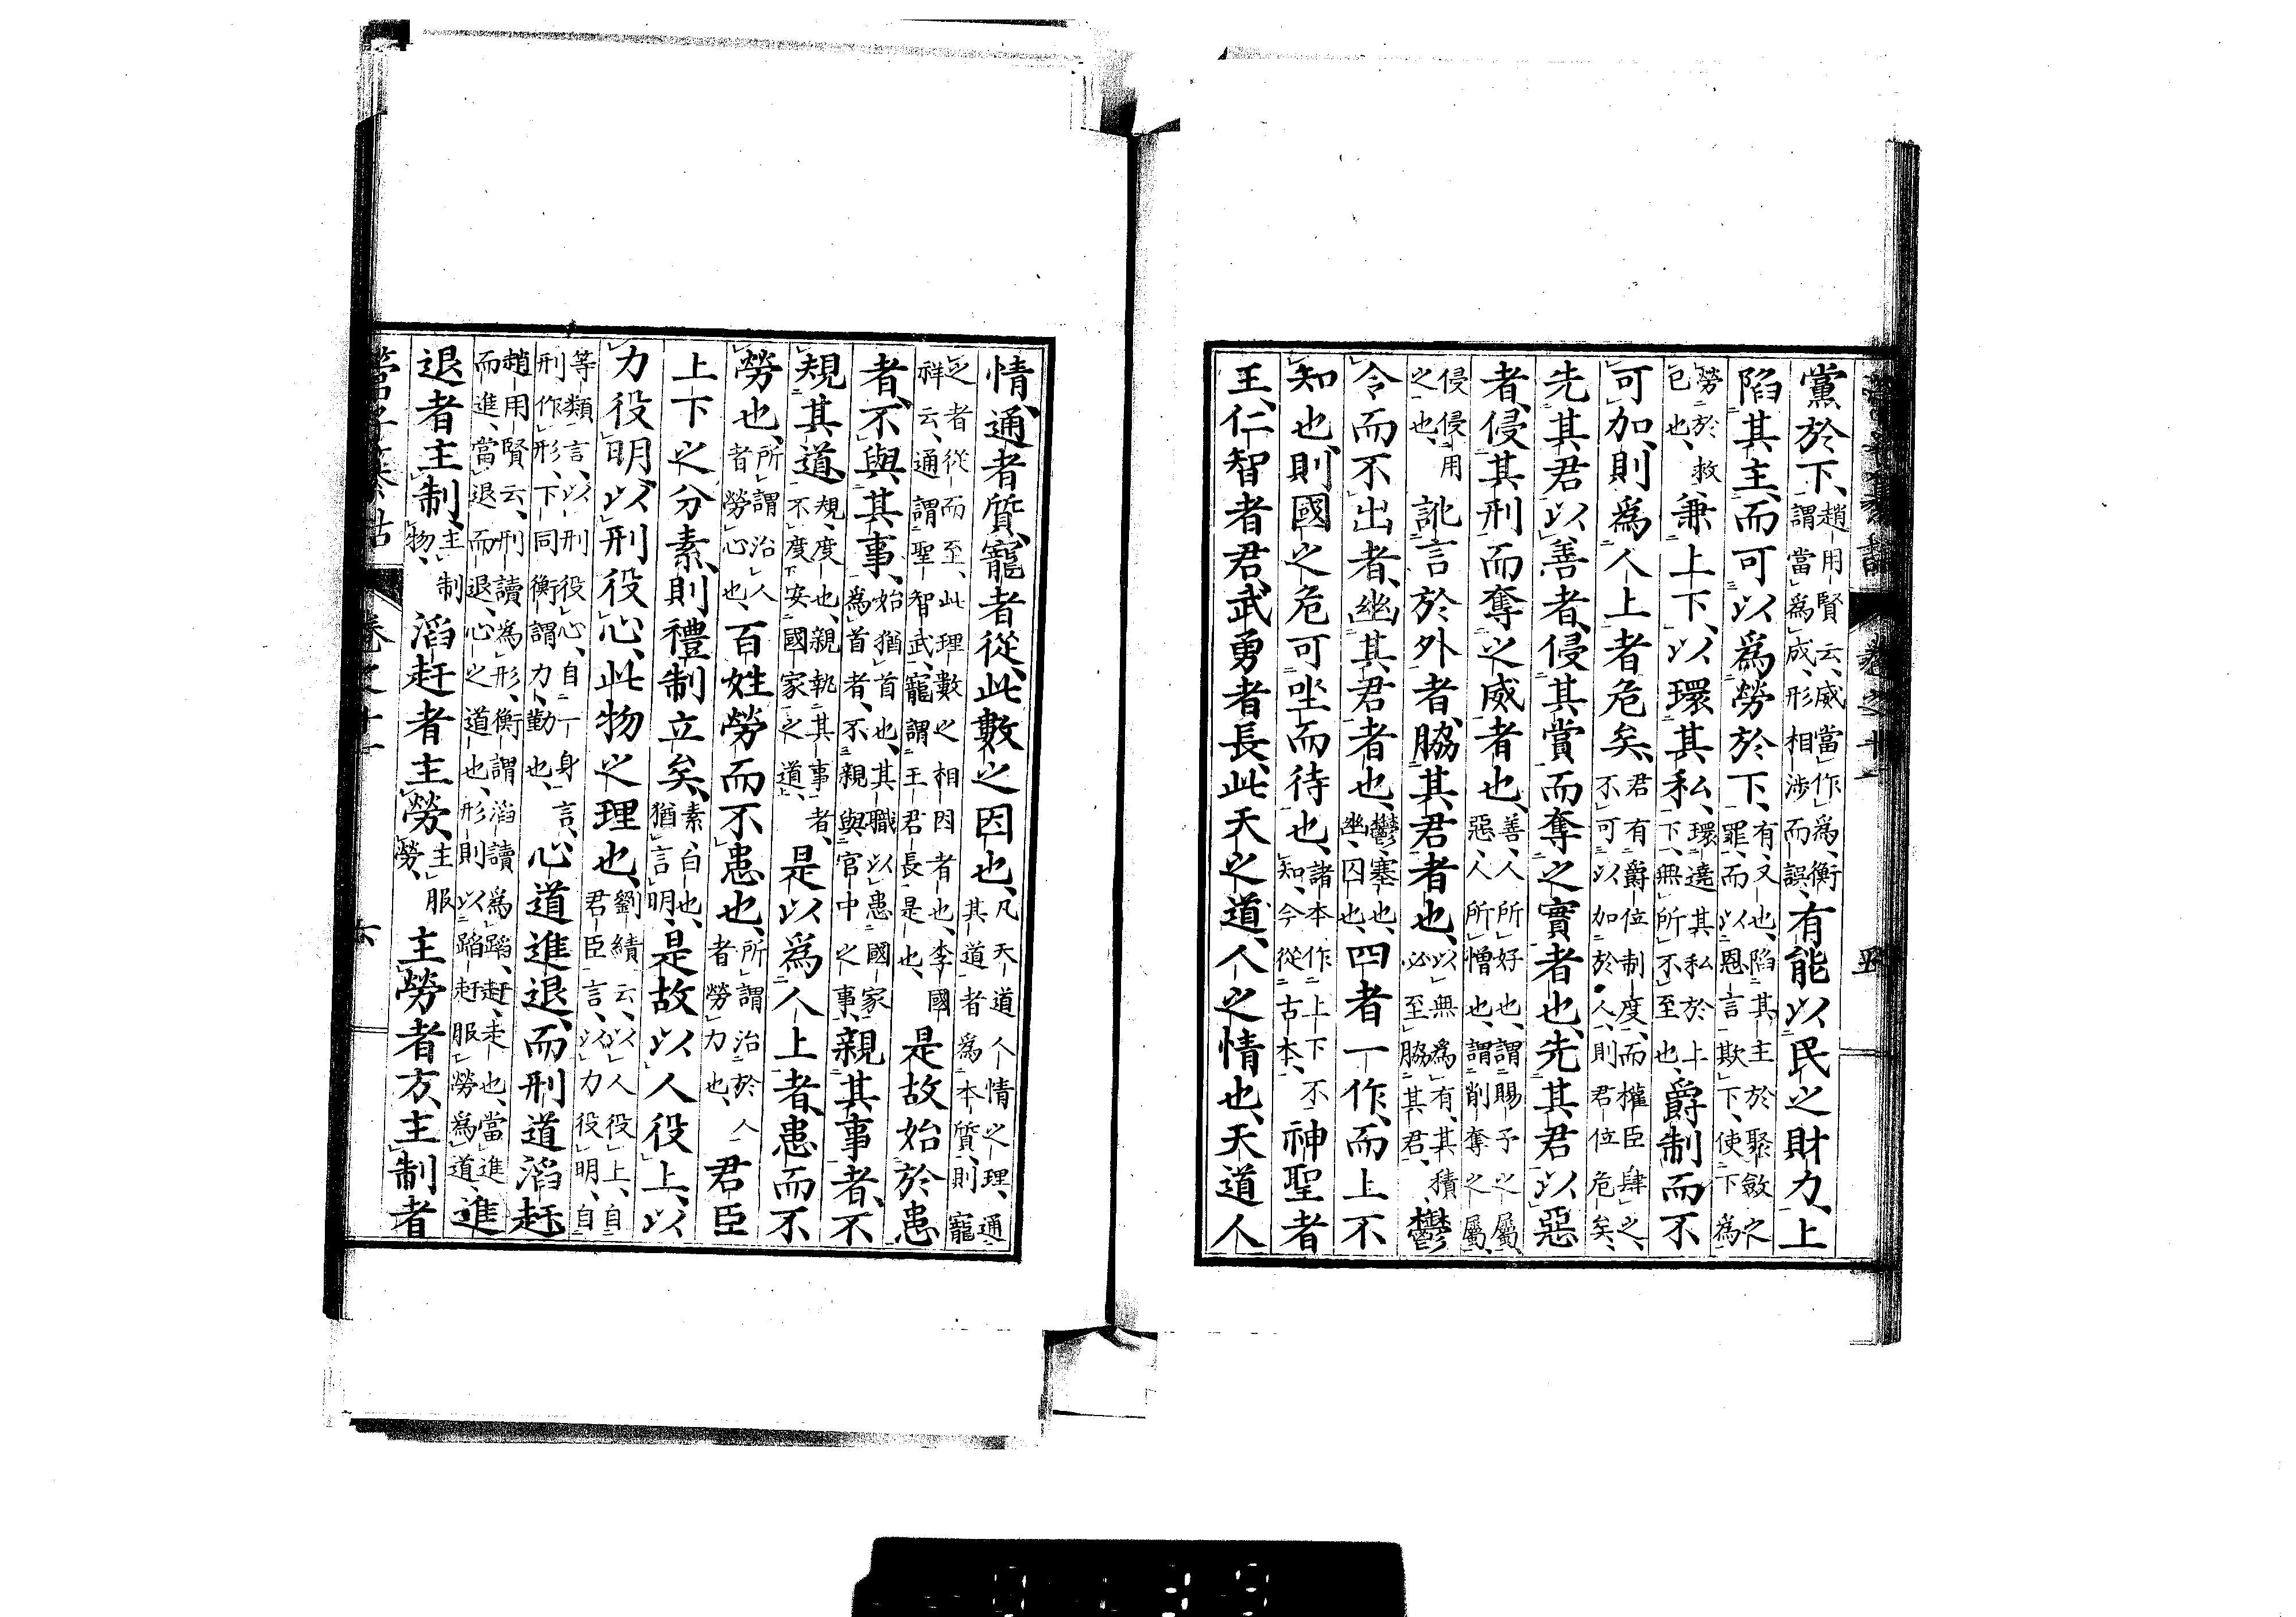 黨於下、趙用賢云、威當作爲衡、謂當爲成、形相涉而誤、有能以民之財力、上
陷其主、而可以爲勞於下、有、又也、陷其主於聚斂之罪、而以恩言欺下、使下爲
勞於救己也、兼上下、以環其私、環遶其私於上下、無所不至也、爵制而不
可加、則爲人上者危矣、君有爵位制度、而權臣肆之、不可以加於人、則君位危矣、
先其君以善者、侵其賞而奪之實者也、先其君以惡
者、侵其刑而奪之威者也、善、人所好也、謂賜予之屬、惡、人所憎也、謂削奪之屬、
侵侵用之也、訛言於外者、脇其君者也、以無爲有、其積必至脇其君、鬱
令而不出者、幽其君者也、鬱、塞也、幽、囚也、四者一作、而上不
知也、則國之危可坐而待也、諸本作上下不知、今從古本、神聖者
王、仁智者君、武勇者長、此天之道、人之情也、天道人
情、通者質、寵者從、此數之因也、凡天道人情之理、通其道者爲本質、則寵
之者從而至、此理數之相因者也、李國祥云、通謂聖智武、寵謂王君長是也、是故始於患
者、不與其事、始猶首也、其職以患國家爲首者、不親與官中之事、親其事者、不
規其道、規、度也、親執其事者、不度安國家之道、是以爲人上者、患而不
勞也、所謂治人者勞心也、百姓勞而不患也、所謂治於人者勞力也、君臣
上下之分素、則禮制立矣、素、白也、猶言明、是故以人役上、以
力役明、以刑役心、此物之理也、劉績云、以人役上、自君臣言、以力役明、自
等類言、以刑役心、自一身言、刑作形、下同、衡謂力勤也、心道進退、而刑道滔赶
趙用賢云、刑讀爲形、衡謂滔讀爲蹈、赶、走也、當進而進、當退而退、心之道也、形則以蹈赶服勞爲道、進
退者主制、主制物、滔赶者主勞、主服勞、主勞者方、主制者
管子纂詁 卷之十一 六